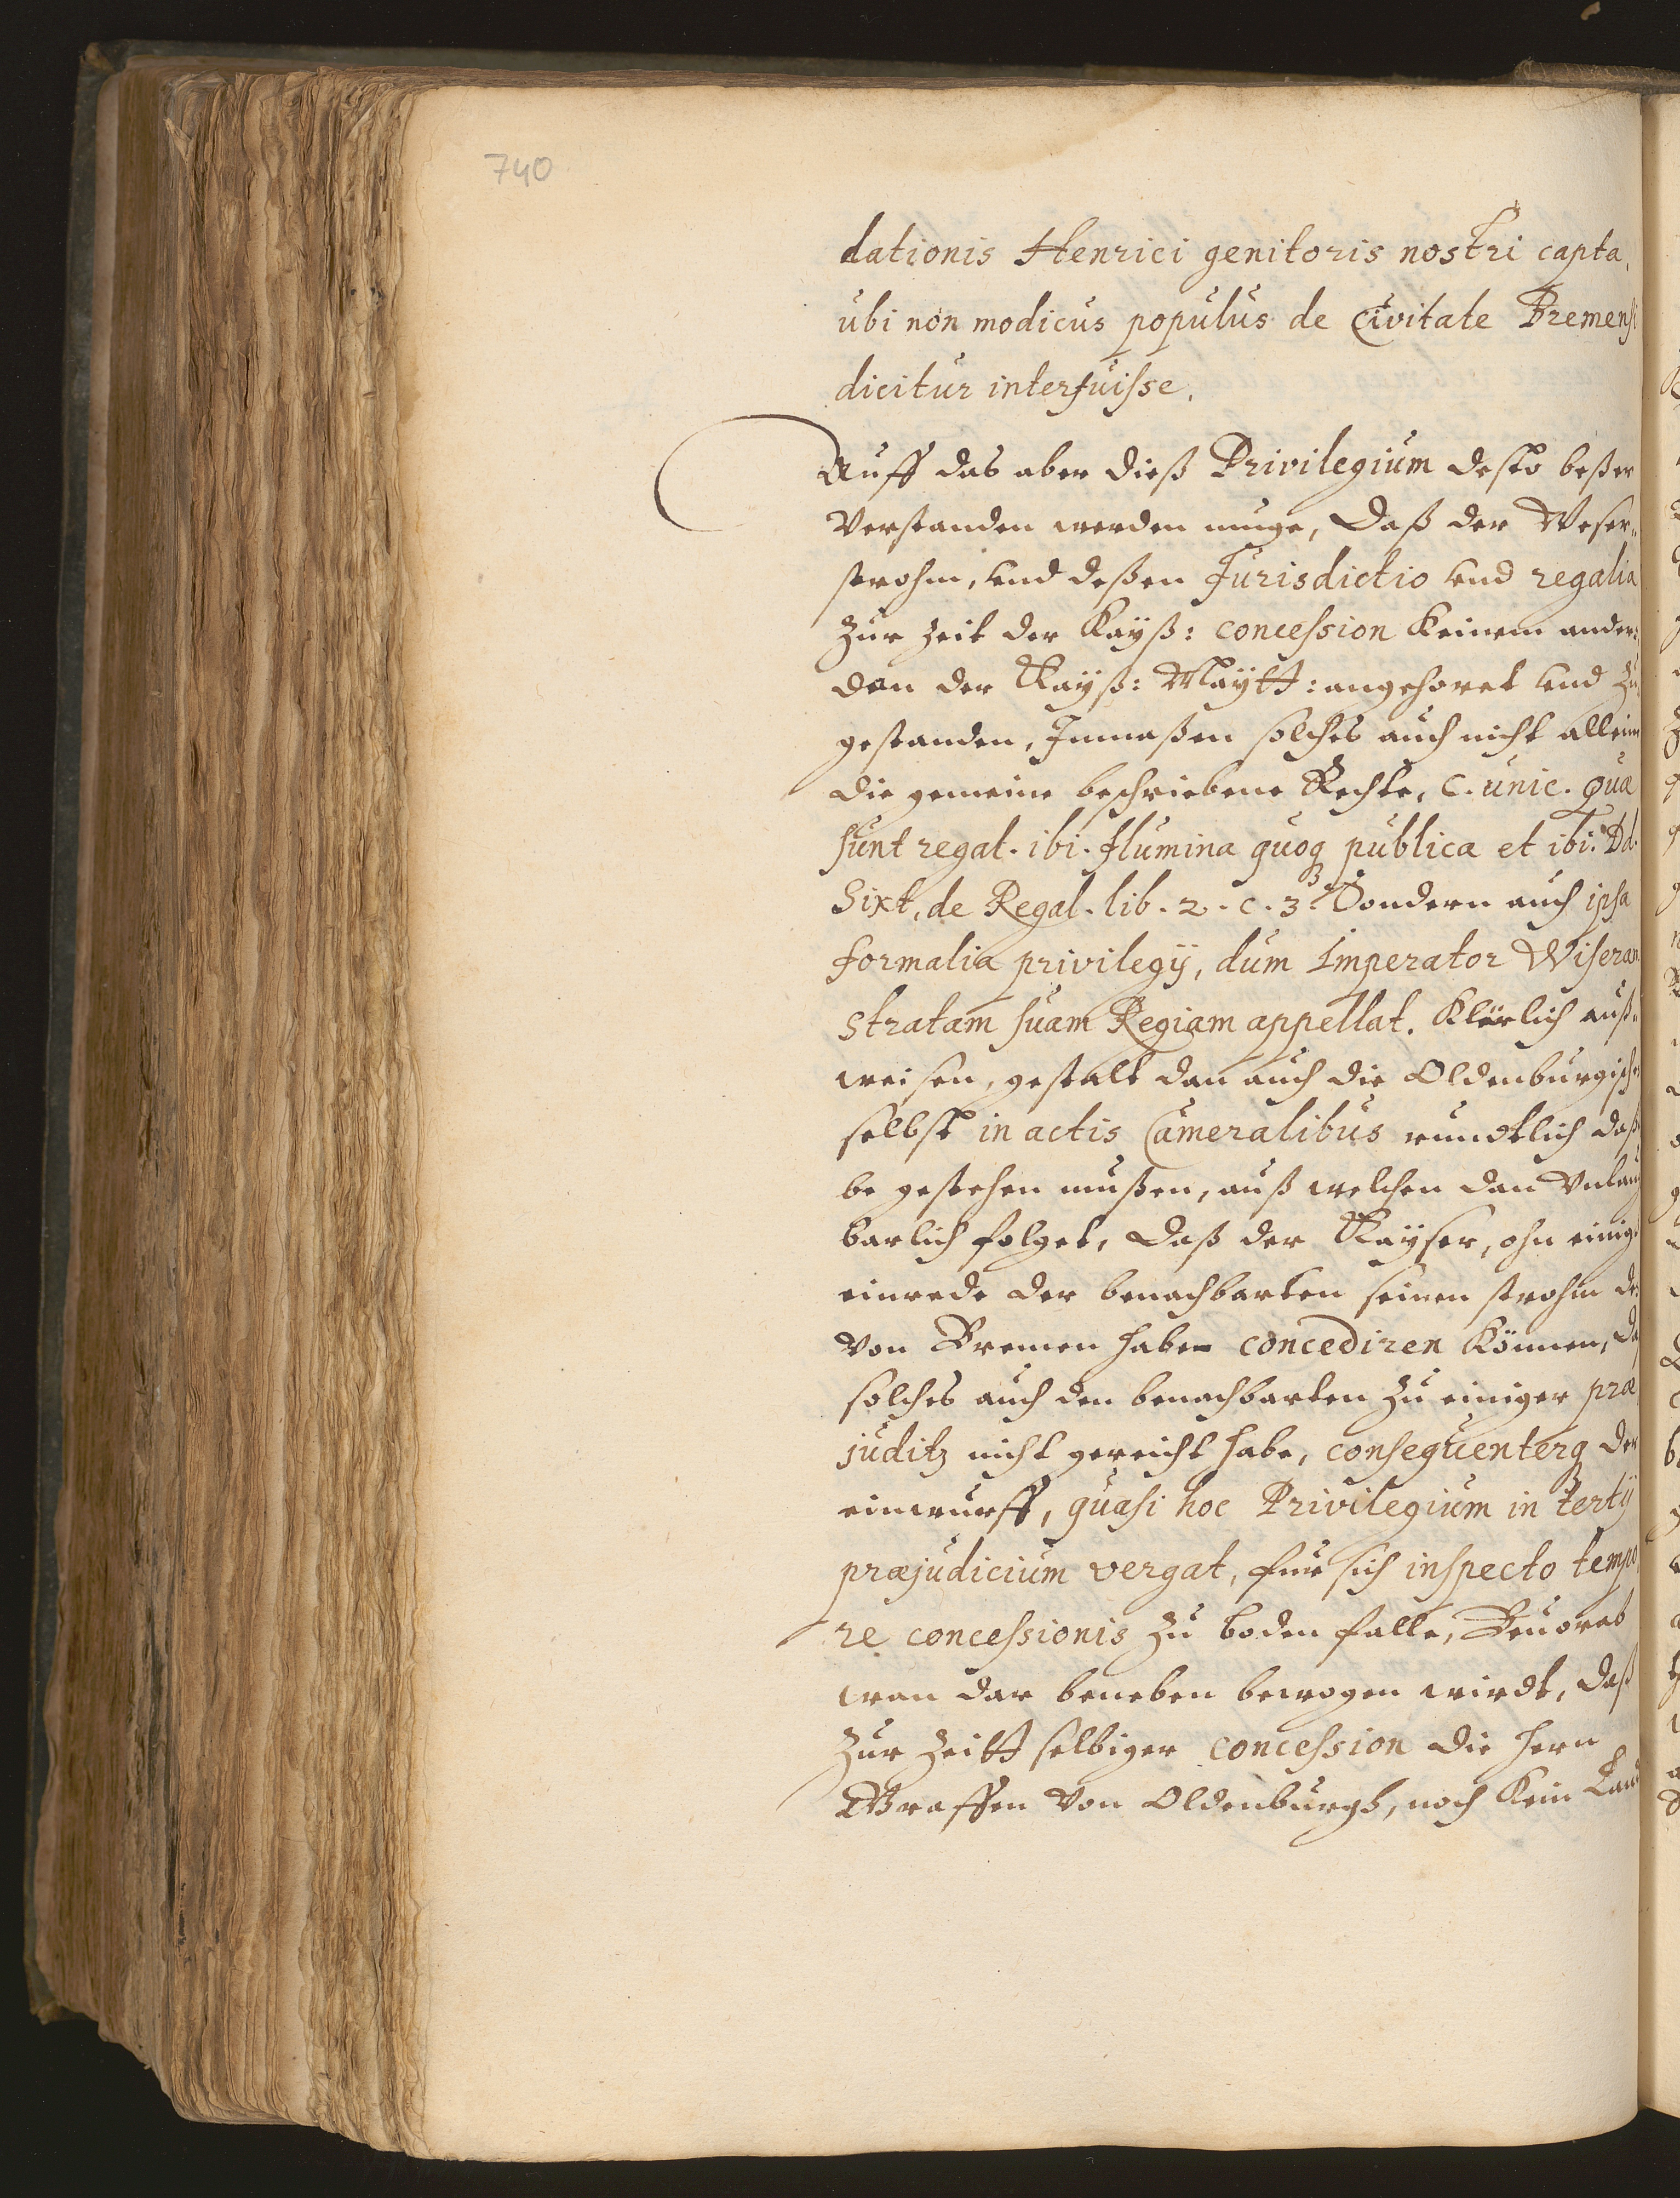 740
dationis Henrici genitoris nostri capta,
ubi non modicus populus de Civitate Bremensi
dicitur interfuisse.
Auff das aber dieß Privilegium desto beßer
verstanden werden muge, Daß der Weser„
strohm, vnd deßen Jurisdictio vnd regalia
zur zeit der Kayß: concession keinem ander:
dan der Kayß: Maytt: angehoret vnd zu
gestanden, Inmaßen solches auch nicht allein
die gemeine beschriebene Rechte, C. unic. quæ
sunt regal. ibi. flumina quoq publica et ibi. Dd.
Sixt, de Regal. lib. 2. c. 3. Sondern auch ipsa
formalia privilegij, dum Imperator Wiseram
stratam suam Regiam appellat. Klärlich auß„
weisen, gestalt dan auch die Oldenburgische
selbst in actis Cameralibus rundtlich daß
be gestehen mußen, auß welchen dan
barlich folget, Daß der Kayser, ohn einige
einrede der benachbarten seinen strohm
von Bremen haben concediren können,
solches auch den benachbarten zu einiger præ
juditz nicht gereicht habe, consequenterq der
einwurff, quasi hoc Privilegium in tertij
præjudicium vergat, für sich inspecto tempo
re concessionis zu boden falle, Beuorab
wan dar beneben bewogen wirdt, daß
zur Zeitt selbiger concession die Hern
Graffen von Oldenburgh, noch kein Land